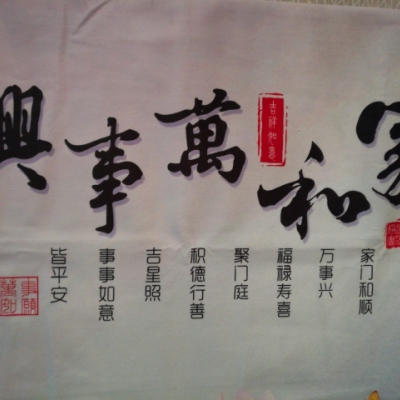 家和萬事興
吉祥如意
家门和顺
万事兴
福禄寿喜
聚门庭
积德行善
吉星照
事事如意
皆平安